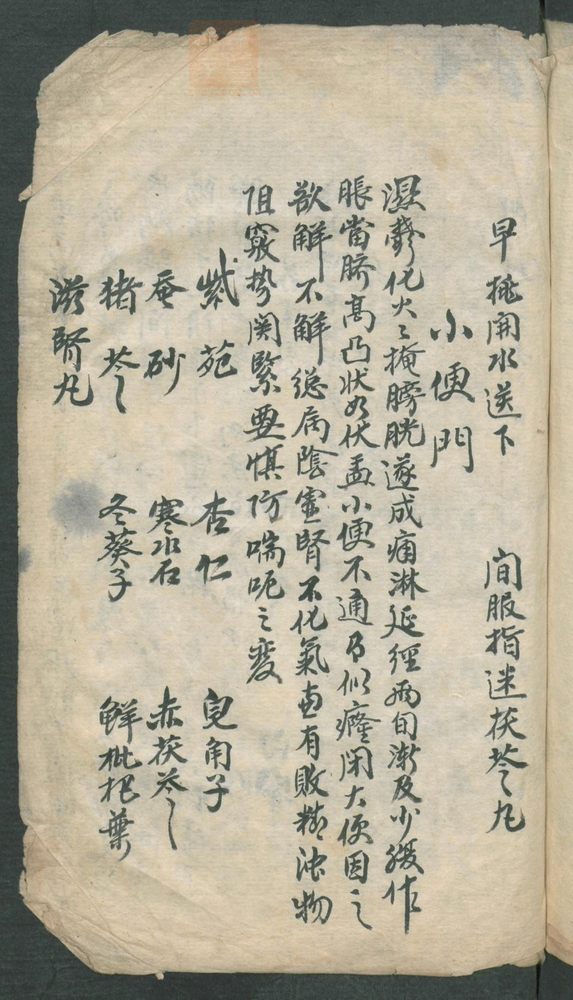 早桃開水送下 間服指迷茯苓丸
小便門
濕鬱化火〻掩膀胱遂成痛淋延經兩旬漸及少腹作
脹當臍高凸狀如伏盂小便不通乃似癃閉大便因之
欲解不解總病陰䘮腎不化氣更有敗精濁物
阻竅勢関緊要慎防喘呃之变
紫苑 杏仁 皂角子
蚕砂 寒水石 赤茯苓
猪苓 冬葵子 鮮枇杷葉
滋腎丸